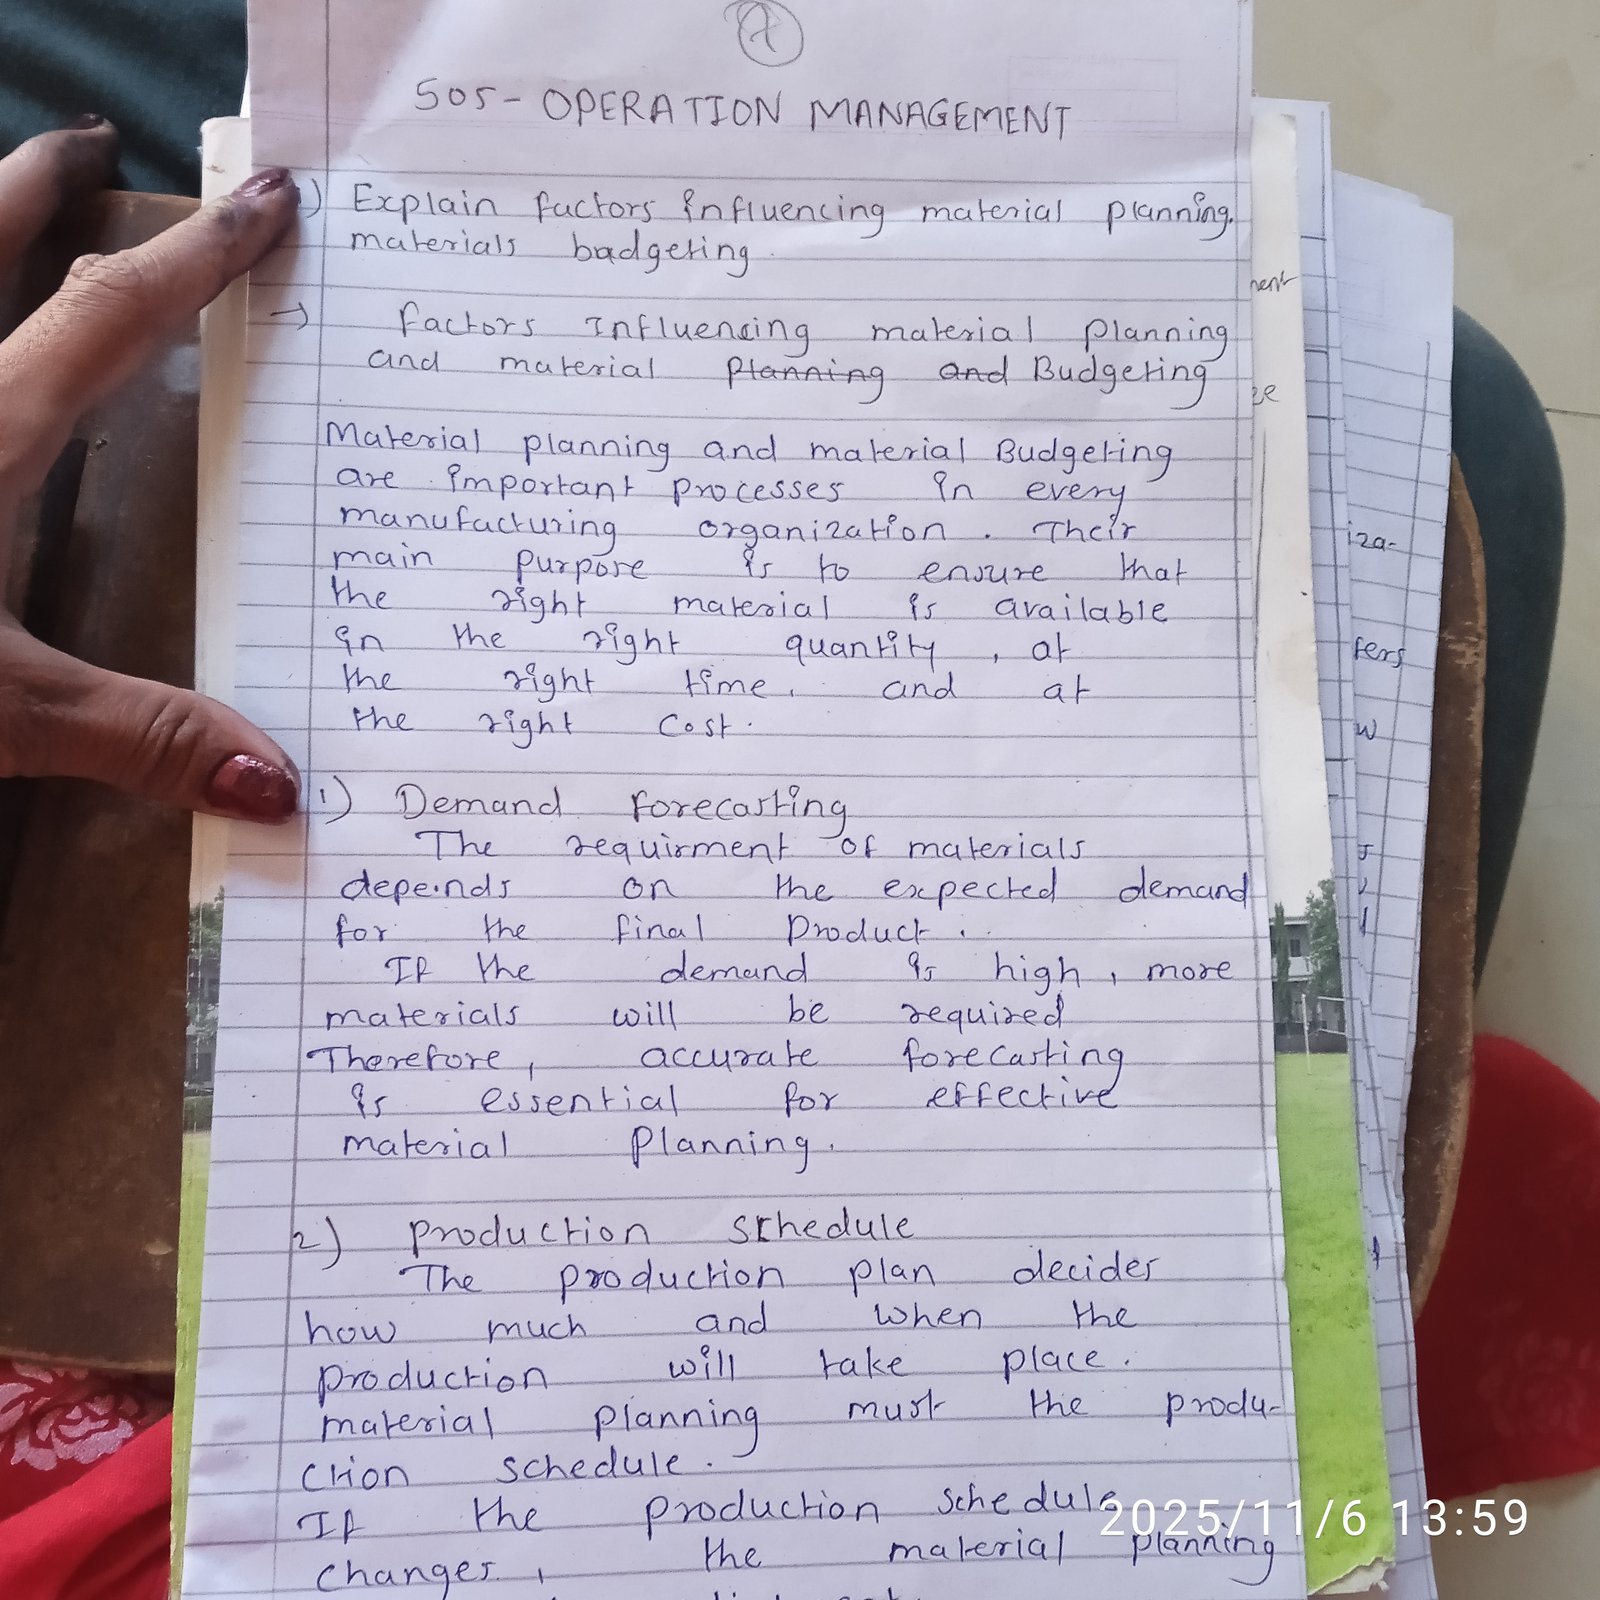 505 - OPERATION MANAGEMENT
) Explain factors influencing material planning.
materials badgeting.
→ factors Influencing material planning
and material planning and Budgeting
Material planning and material Budgeting
are important processes in every
manufacturing organization. Their
main purpose is to ensure that
the right material is available
in the right quantity, at
the right time, and at
the right cost.
1) Demand forecasting
The requirment of materials
depends on the expected demand
for the final product.
If the demand is high, more
materials will be required
Therefore, accurate forecasting
is essential for effective
material planning.
2) production schedule
The production plan decides
how much and when the
production will take place.
material planning must the produ-
ction schedule.
If the production schedule
changes, the material planning
2025/11/6 13:59
iza-
ters
w